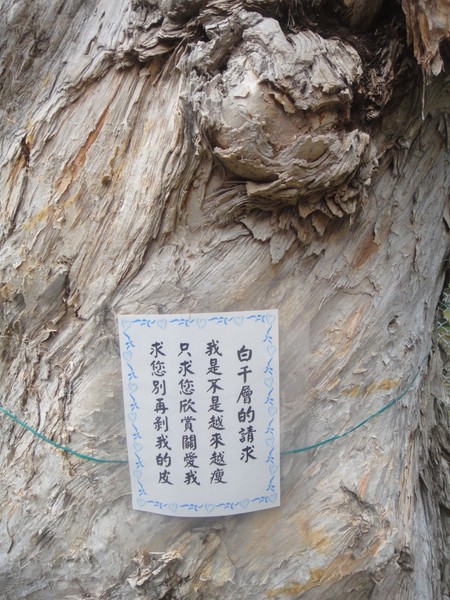 白千層的請求
我是不是越來越瘦
只求您欣賞關愛我
求您別再剝我的皮